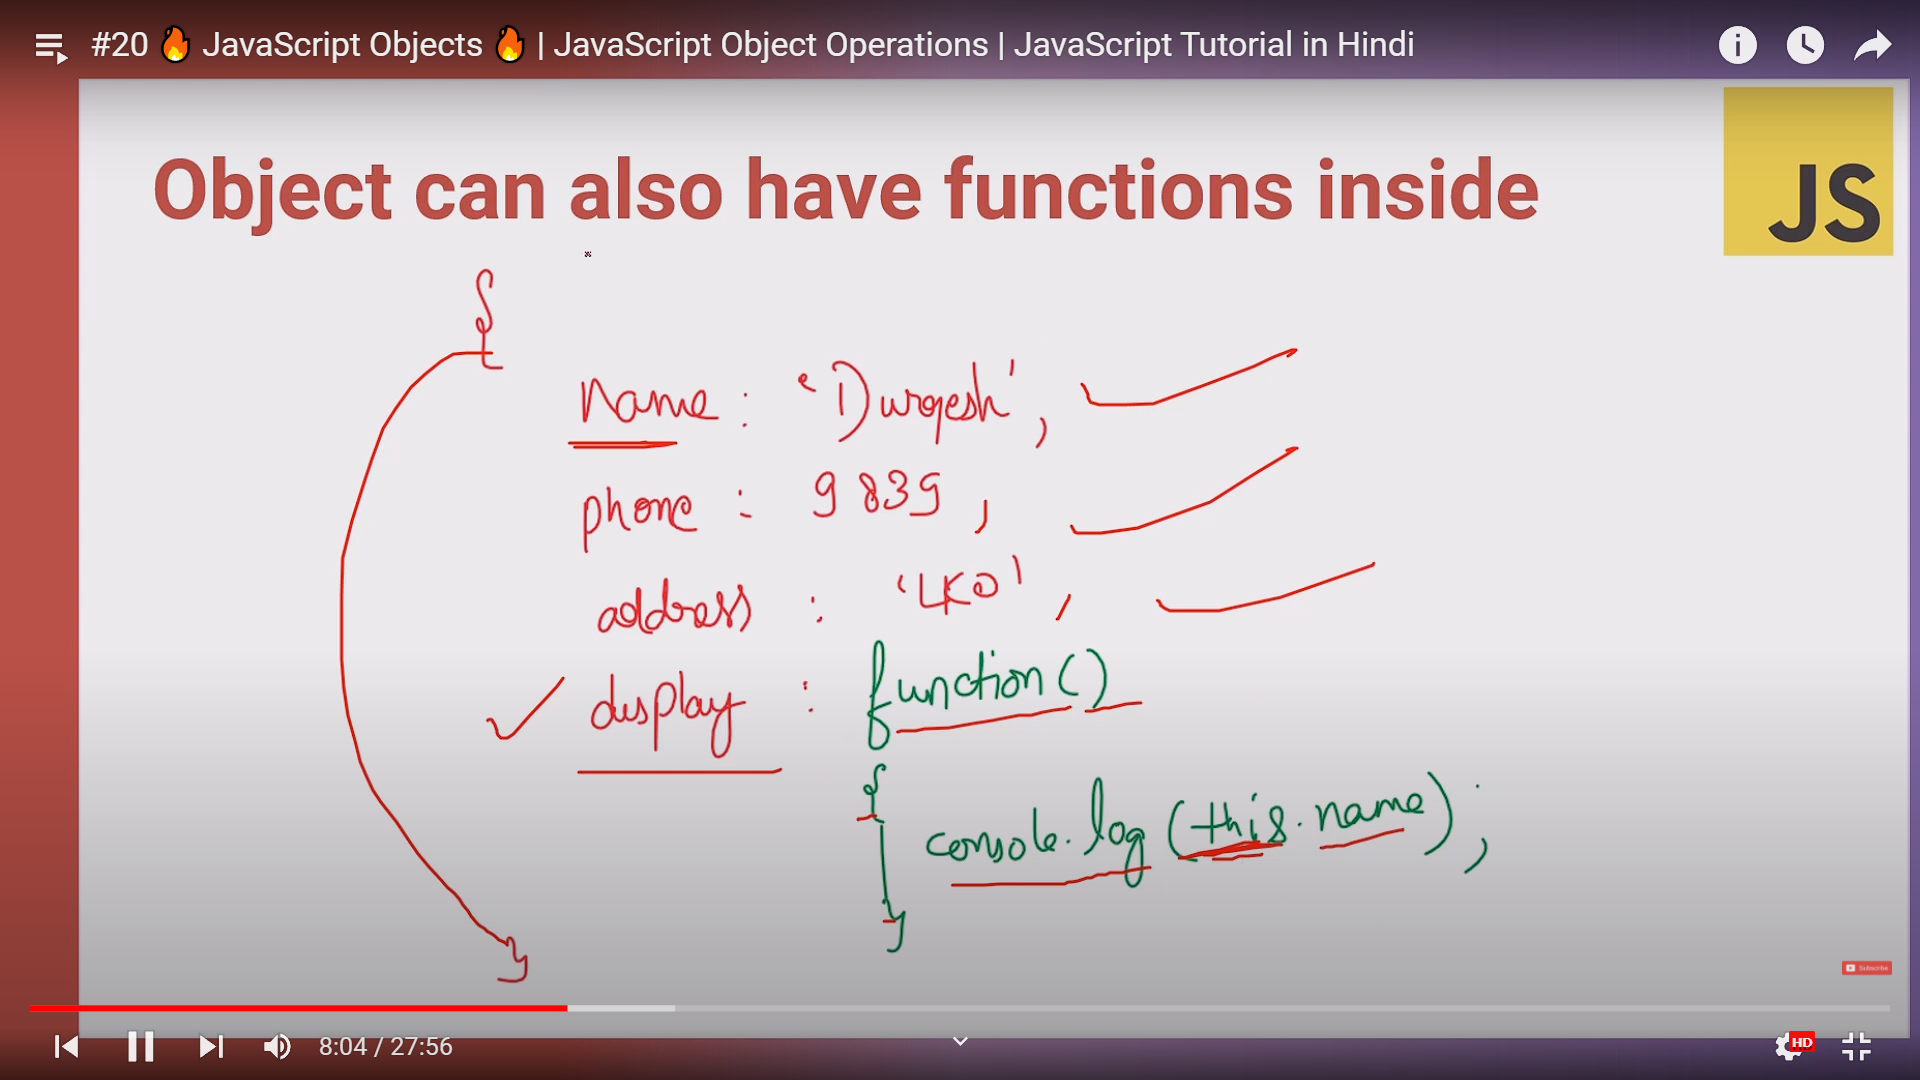 #20 🔥 JavaScript Objects 🔥 | JavaScript Object Operations | JavaScript Tutorial in Hindi
JS
Object can also have functions inside
{
name : 'Durgesh',
phone : 9839,
address : 'LKO',
display : function()
{
console.log(this.name);
}
}
Subscribe
8:04 / 27:56
HD